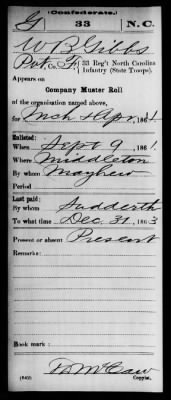 (Confederate.)
G 33 N.C.
W B Gibbs
Pvt, Co. F, 33 Reg't North Carolina
Infantry (State Troops).
Appears on
Company Muster Roll
of the organization named above,
for Mch & Apr, 1864.
Enlisted:
When Sept 9, 1861.
Where Middleton
By whom Mayhew
Period
Last paid:
By whom Sudderth
To what time Dec. 31, 1863
Present or absent Present
Remarks:
Book mark:
(642) Copyist.